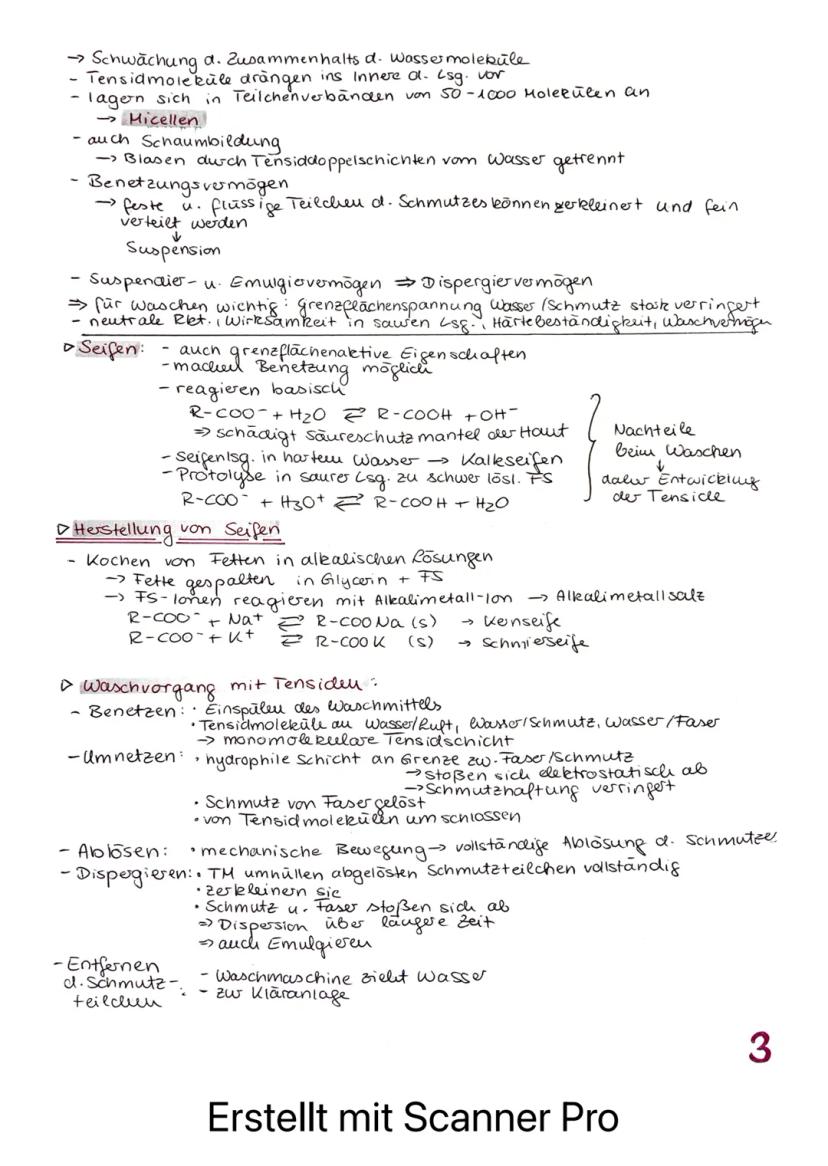 → Schwächung d. Zusammenhalts d. Wassermoleküle
- Tensidmoleküle drängen ins Innere d. Lsg. vor
- lagern sich in Teilchenverbänden von 50-1000 Molekülen an
→ Micellen
- auch Schaumbildung
→ Blasen durch Tensiddoppelschichten vom Wasser getrennt
- Benetzungsvermögen
→ feste u. flüssige Teilchen d. Schmutzes können zerkleinert und fein
verteilt werden
↓
Suspension
- Suspendier- u. Emulgiervermögen ⇒ Dispergiervermögen
⇒ für Waschen wichtig: Grenzflächenspannung Wasser/Schmutz stark verringert
- neutrale Rkt., Wirksamkeit in sauren Lsg., Härtebeständigkeit, Waschvermögen
▷ Seifen: - auch grenzflächenaktive Eigenschaften
- machen Benetzung möglich
- reagieren basisch
R-COO⁻ + H₂O ⇄ R-COOH + OH⁻
⇒ schädigt Säureschutzmantel der Haut
- Seifenlsg. in hartem Wasser → Kalkseifen
- Protolyse in saurer Lsg. zu schwer lösl. FS
R-COO⁻ + H₃O⁺ ⇄ R-COOH + H₂O
Nachteile
beim Waschen
↓
daher Entwicklung
der Tenside
▷ Herstellung von Seifen
- Kochen von Fetten in alkalischen Lösungen
→ Fette gespalten in Glycerin + FS
→ FS-Ionen reagieren mit Alkalimetall-Ion → Alkalimetallsalz
R-COO⁻ + Na⁺ ⇄ R-COONa (s) → Kernseife
R-COO⁻ + K⁺ ⇄ R-COOK (s) → Schmierseife
▷ Waschvorgang mit Tensiden:
- Benetzen: • Einspülen des Waschmittels
• Tensidmoleküle an Wasser/Luft, Wasser/Schmutz, Wasser/Faser
→ monomolekulare Tensidschicht
- Umnetzen: • hydrophile Schicht an Grenze zw. Faser/Schmutz
→ stoßen sich elektrostatisch ab
→ Schmutzhaftung verringert
• Schmutz von Faser gelöst
• von Tensidmolekülen umschlossen
- Ablösen: • mechanische Bewegung → vollständige Ablösung d. Schmutzes
- Dispegieren: • TM umhüllen abgelösten Schmutzteilchen vollständig
• zerkleinern sie
• Schmutz u. Faser stoßen sich ab
⇒ Dispersion über längere Zeit
⇒ auch Emulgieren
- Entfernen
d. Schmutz-
teilchen: - Waschmaschine zieht Wasser
- zur Kläranlage
3
Erstellt mit Scanner Pro